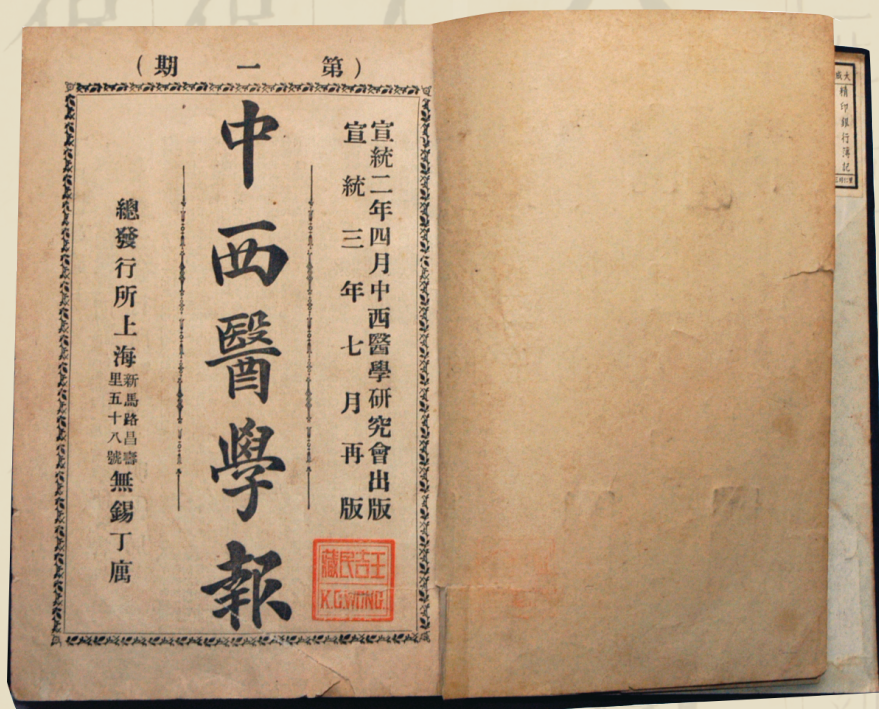 （第一期）
宣統二年四月中西醫學研究會出版
宣統三年七月再版
中西醫學報
總發行所上海新馬路昌壽里五十八號無錫丁庽
王吉民藏
K.C.WONG.
精印銀行簿記